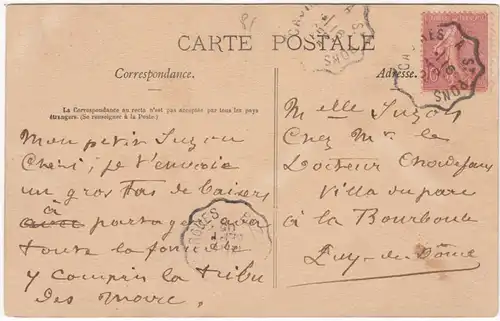 CARTE POSTALE
Correspondance.
Adresse.
La Correspondance au recto n'est pas acceptée par tous les pays
étrangers. (Se renseigner à la Poste.)
Mon petit Suzon
Chéri, je t'envoie
un gros tas de baisers
à
partager avec
toute la
y compris la tribu
des
Melle Suzon
Chez Mr le
Docteur
Villa du parc
à la Bourboule
Puy-de-Dôme